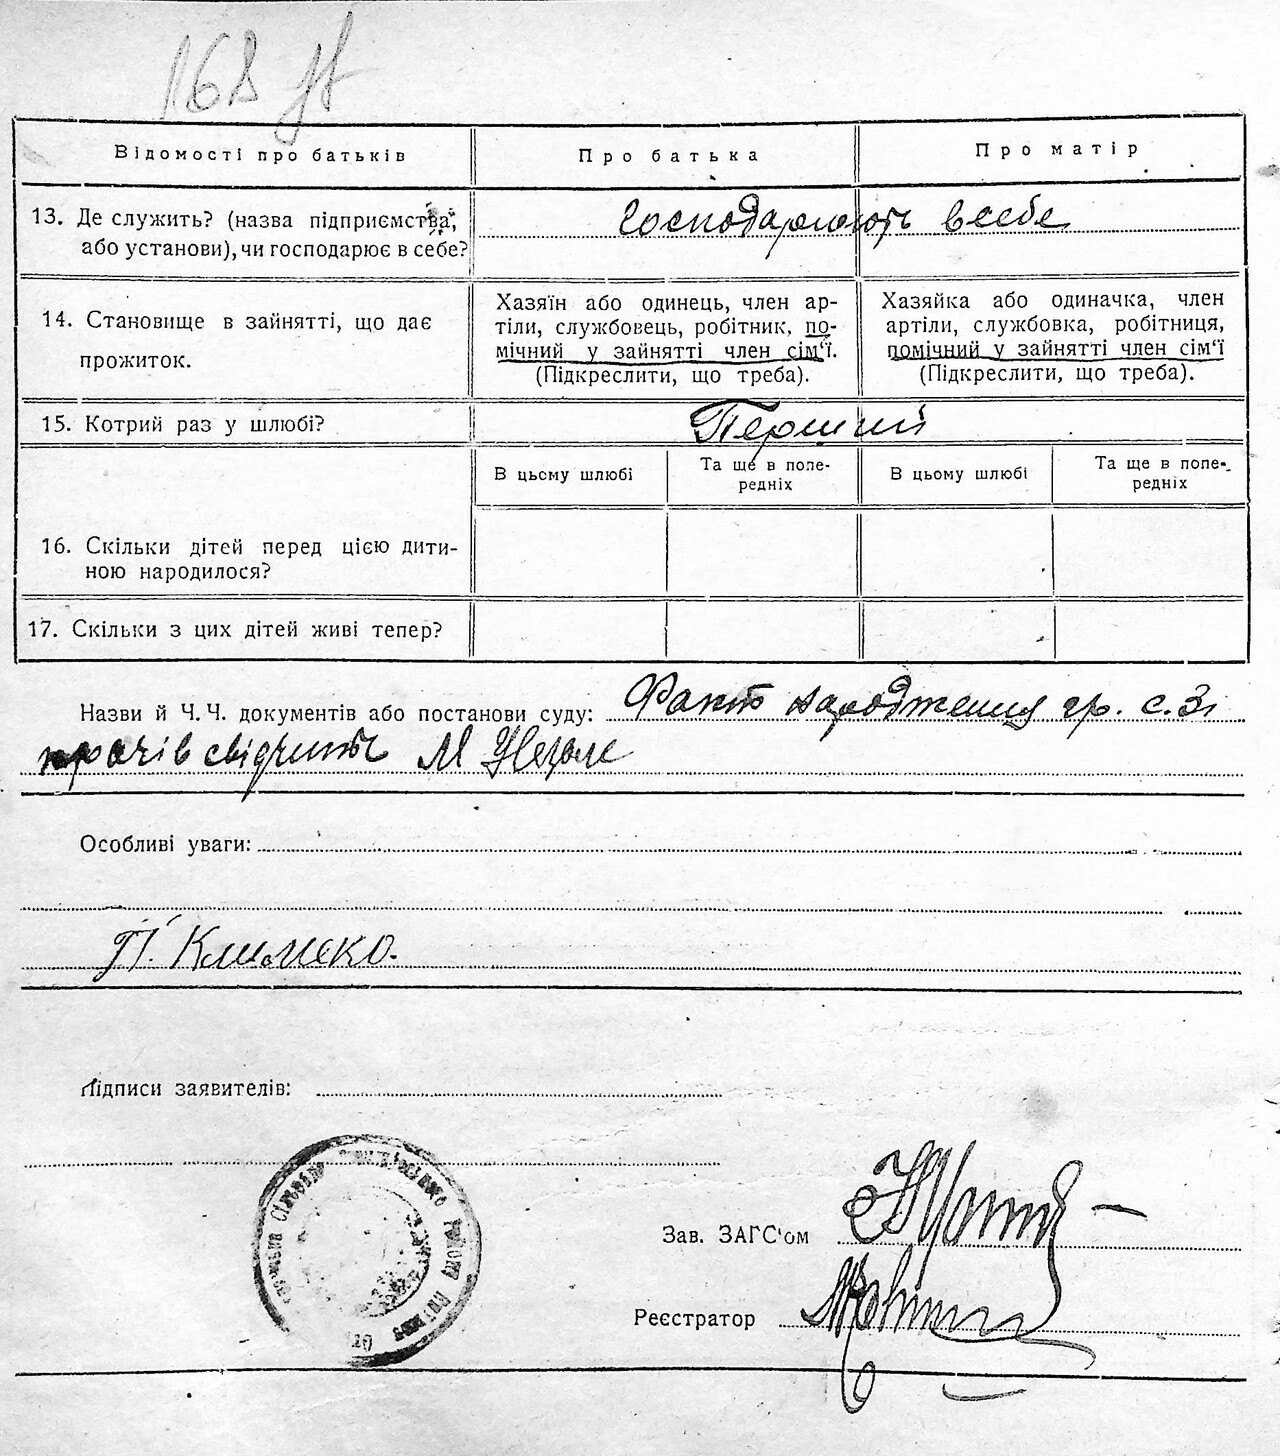 168
Відомості про батьків
Про батька
Про матір
13. Де служить? (назва підприємства,
або установи), чи господарює в себе?
Господарюють в себе
14. Становище в зайнятті, що дає
прожиток.
Хазяїн або одинець, член ар-
тіли, службовець, робітник, по-
мічний у зайнятті член сім'ї.
(Підкреслити, що треба).
Хазяйка або одиначка, член
артіли, службовка, робітниця,
помічний у зайнятті член сім'ї
(Підкреслити, що треба).
15. Котрий раз у шлюбі?
Перший
В цьому шлюбі
Та ще в попе-
редніх
В цьому шлюбі
Та ще в попе-
редніх
16. Скільки дітей перед цією дити-
ною народилося?
17. Скільки з цих дітей живі тепер?
Назви й Ч. Ч. документів або постанови суду: Факт народження гр. с.
свідчить М
Особливі уваги:
П. Клименко.
Підписи заявителів:
Зав. ЗАГС'ом
Реєстратор